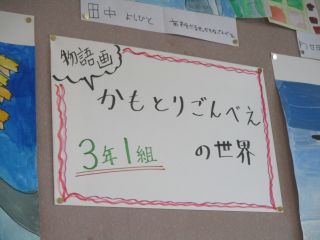 田中 よしひと
物語画
かもとりごんべえ
の世界
3年1組